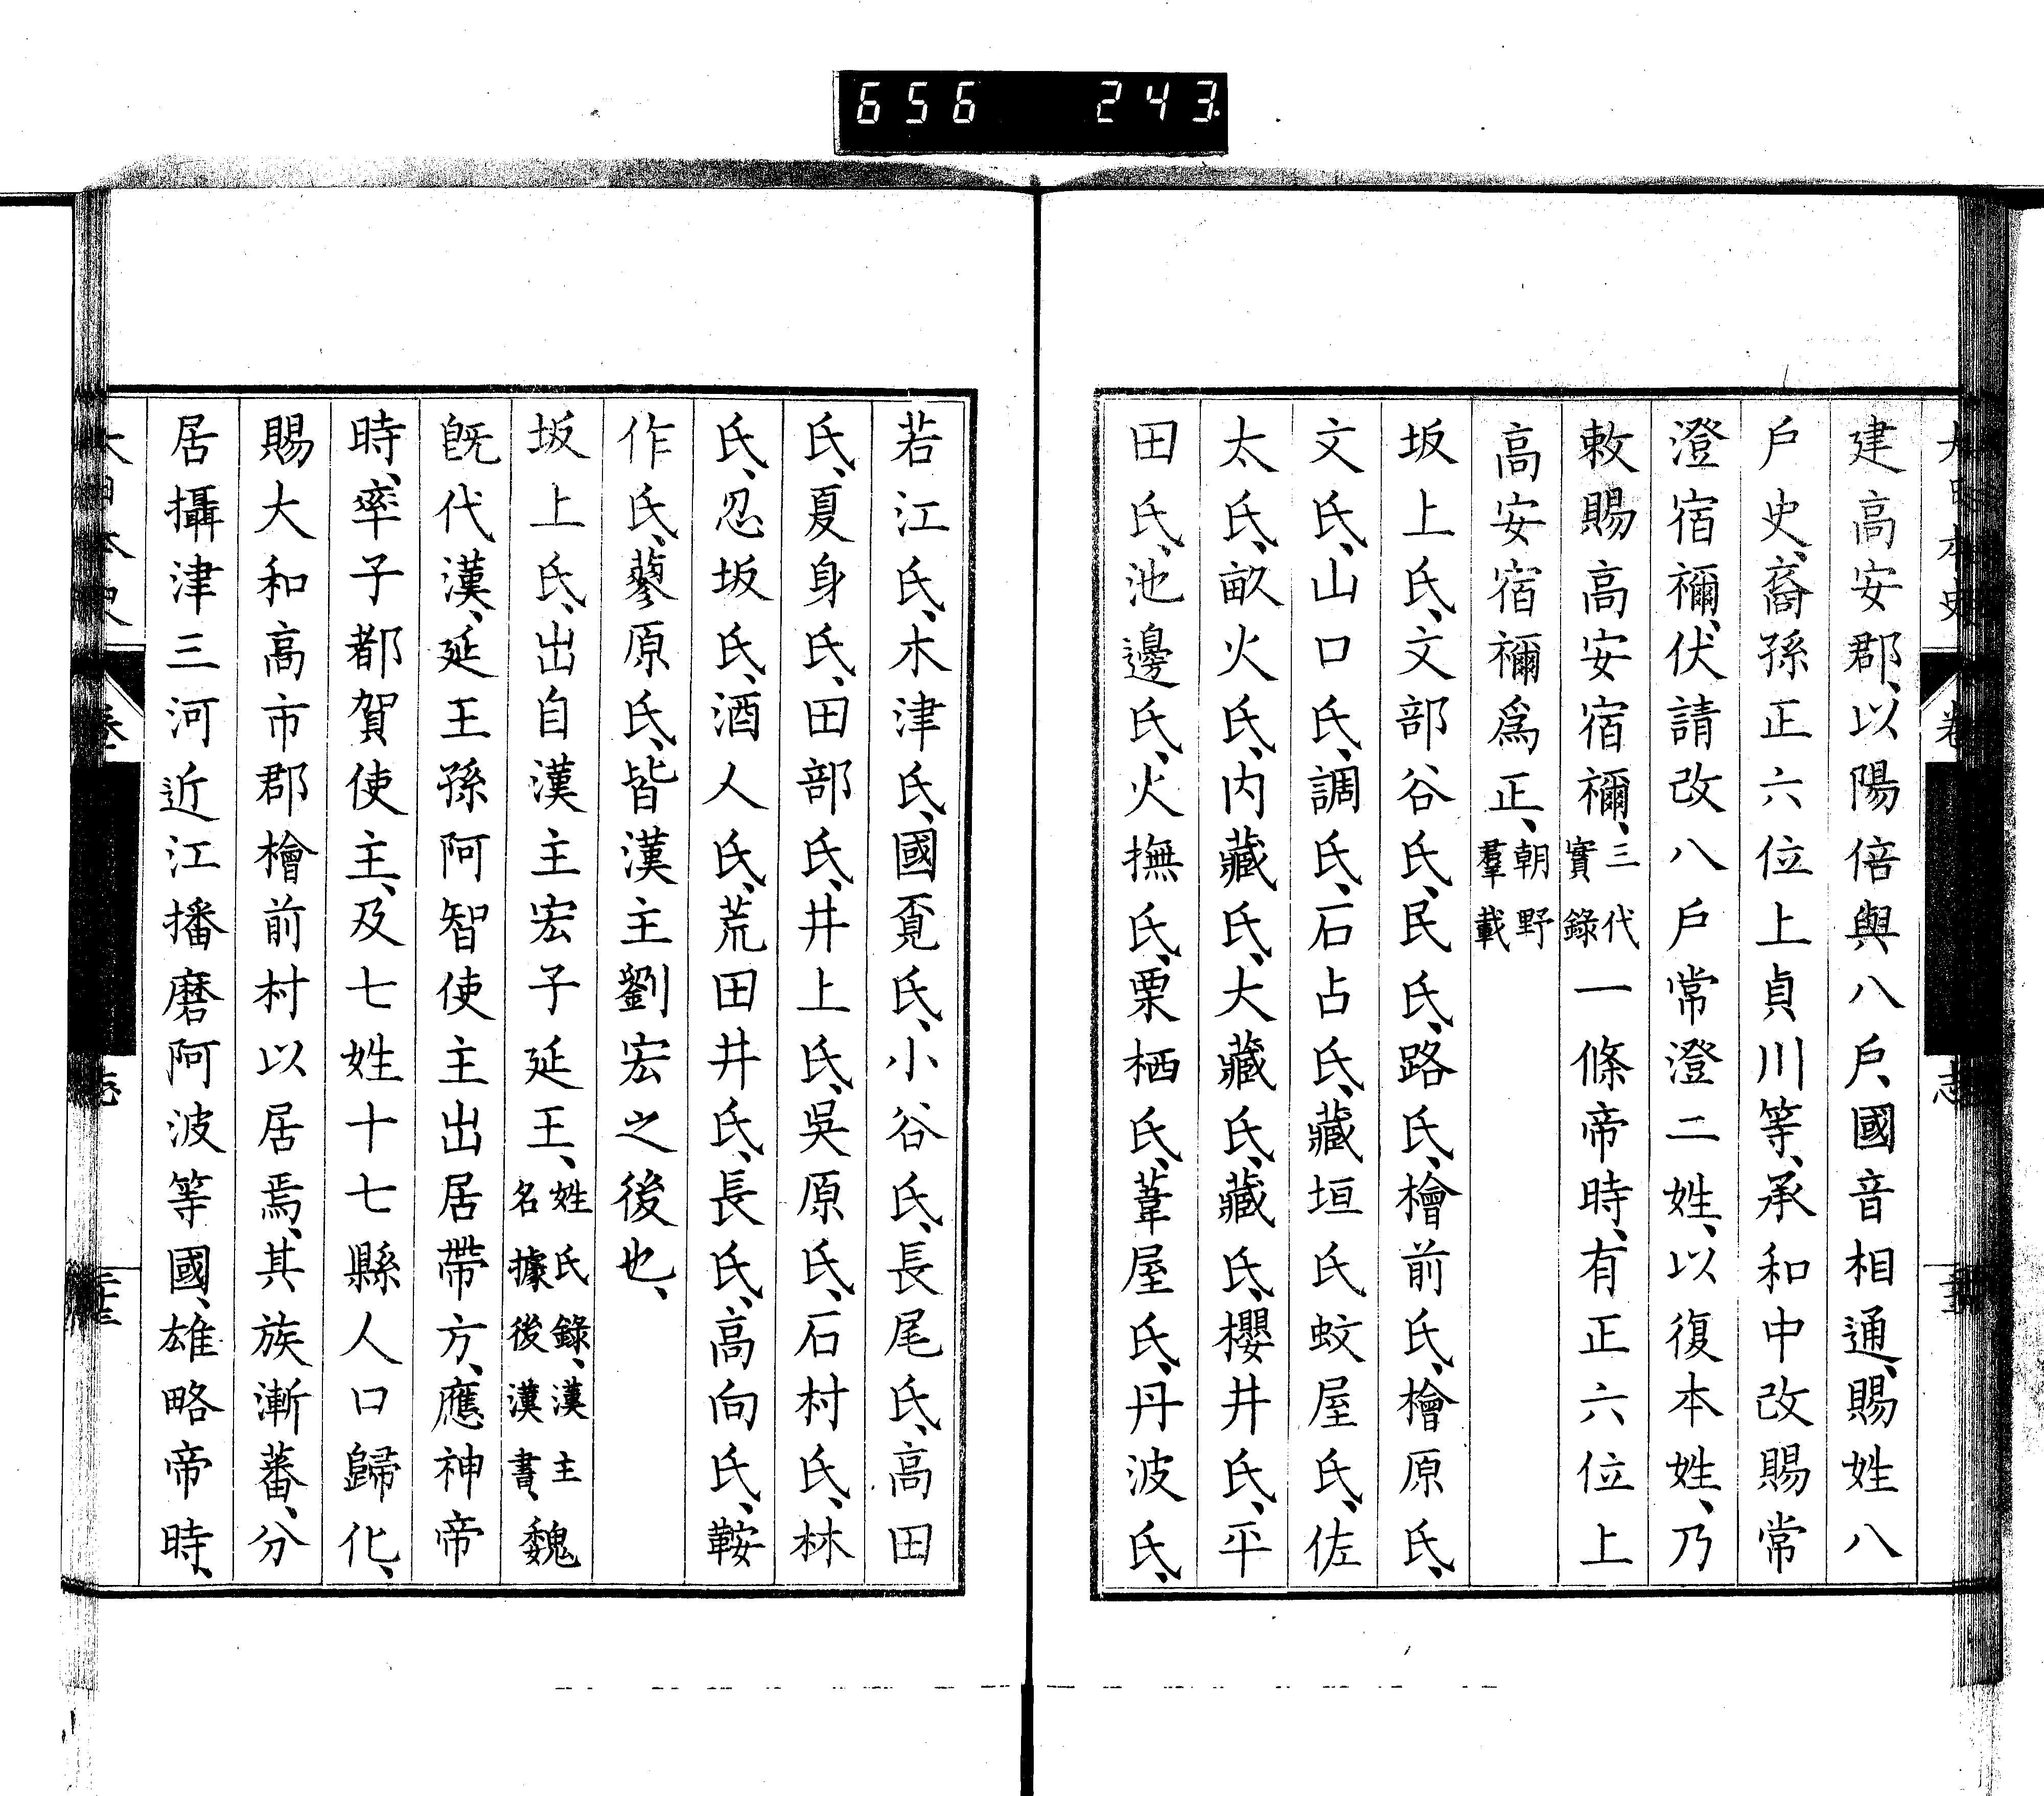 656 243
大日本史 卷 志
建高安郡、以陽倍與八戶、國音相通、賜姓八
戶史、裔孫正六位上貞川等、承和中改賜常
澄宿禰、伏請改八戶常澄二姓、以復本姓、乃
敕賜高安宿禰、三代實錄一條帝時、有正六位上
高安宿禰爲正、朝野羣載
坂上氏、文部谷氏、民氏、路氏、檜前氏、檜原氏、
文氏、山口氏、調氏、石占氏、藏垣氏蚊屋氏、佐
太氏、畝火氏、内藏氏、大藏氏、藏氏、櫻井氏、平
田氏、池邊氏、火撫氏、栗栖氏、葦屋氏、丹波氏、
若江氏、木津氏、國覔氏、小谷氏、長尾氏、高田
氏、夏身氏、田部氏、井上氏、吳原氏、石村氏、林
氏、忍坂氏、酒人氏、荒田井氏、長氏、高向氏、鞍
作氏、蓼原氏、皆漢主劉宏之後也、
坂上氏、出自漢主宏子延王、姓氏錄、漢主名據後漢書、魏
旣代漢、延王孫阿智使主出居帶方、應神帝
時、率子都賀使主、及七姓十七縣人口歸化、
賜大和高市郡檜前村以居焉、其族漸蕃、分
居攝津三河近江播磨阿波等國、雄略帝時、
大日本史 卷 志